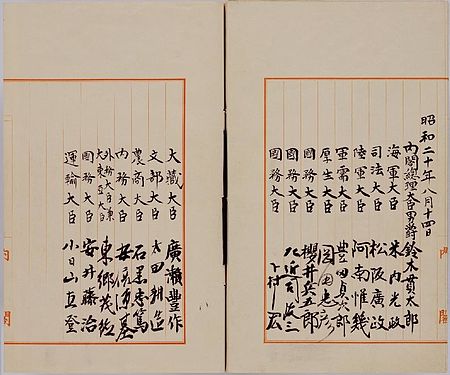 昭和二十年八月十四日
内閣總理大臣男爵鈴木貫太郎
海軍大臣 米内光政
司法大臣 松阪廣政
陸軍大臣 阿南惟幾
軍需大臣 豊田貞次郎
厚生大臣 岡田忠彦
國務大臣 櫻井兵五郎
國務大臣 左近司政三
國務大臣 下村宏
大藏大臣 廣瀬豊作
文部大臣 太田耕造
農商大臣 石黒忠篤
内務大臣 安倍源基
外務大臣兼
大東亞大臣 東郷茂徳
國務大臣 安井藤治
運輸大臣 小日山直登
内閣